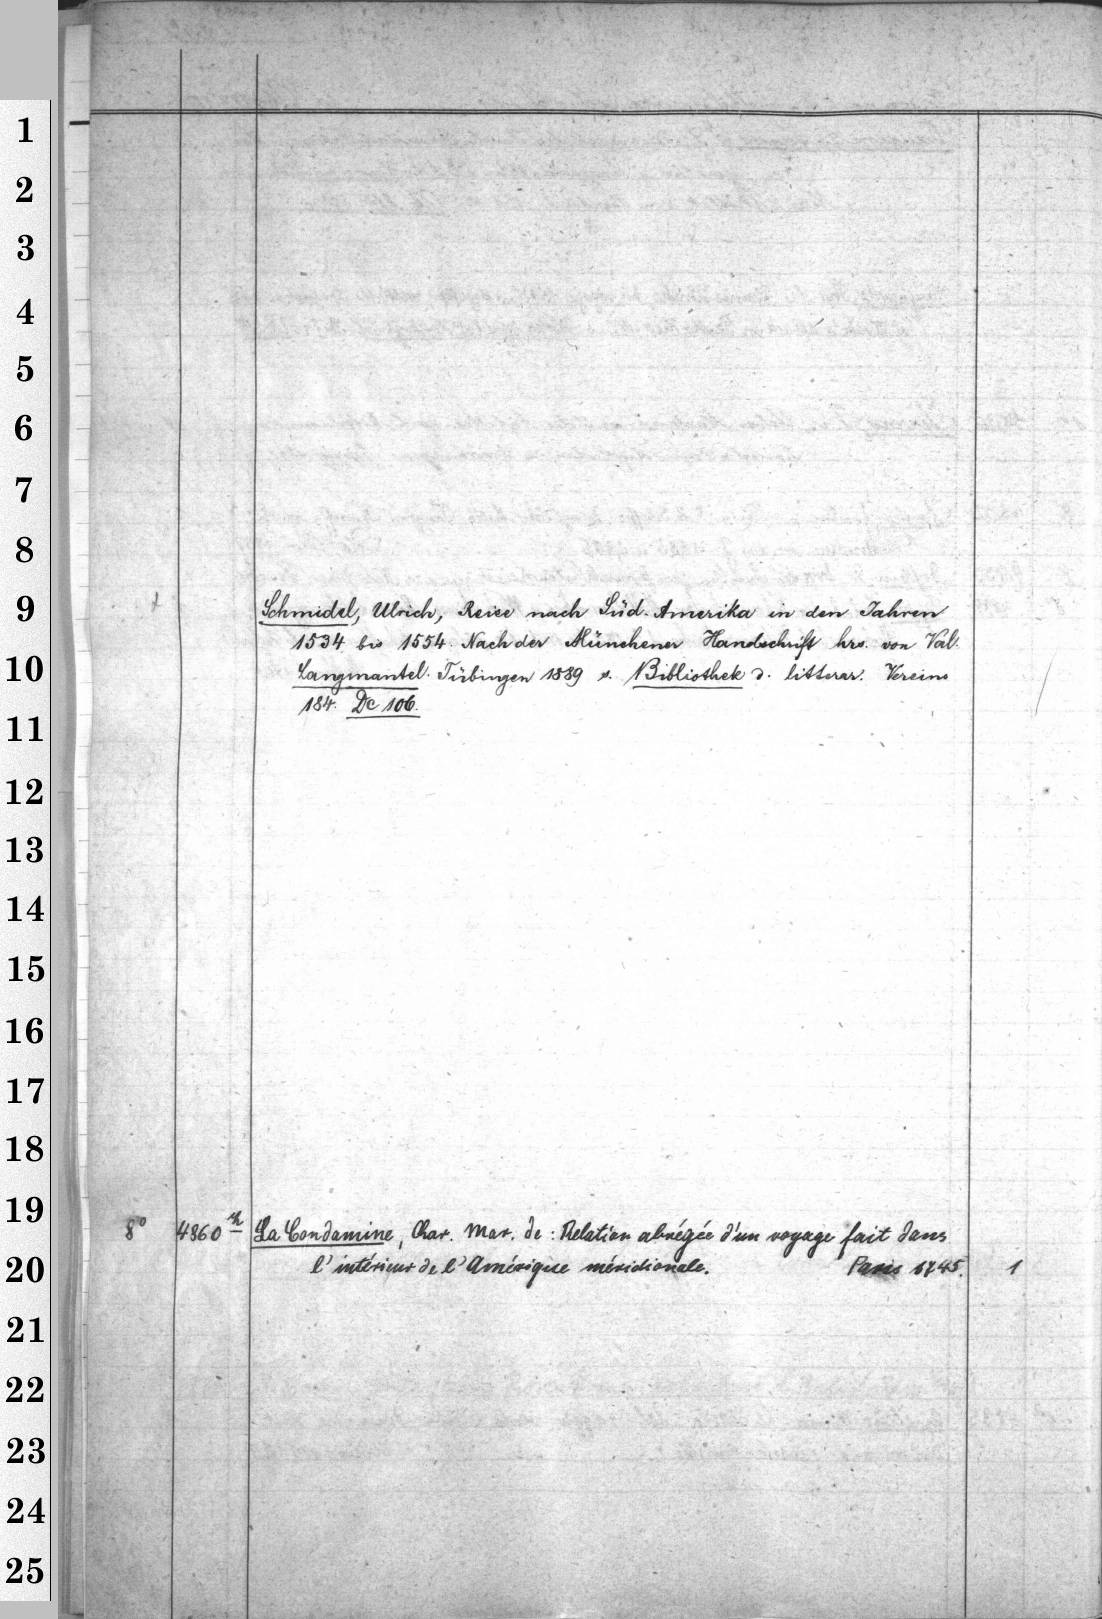 1
2
3
4
5
6
7
8
9
Schmidel, Ulrich, Reise nach Süd. Amerika in den Jahren
1534 bis 1554. Nach der Münchener Handschrift hrs. von Val.
10
Langmantel. Tübingen 1889 s. Bibliothek d. litterar. Vereins
184. Dc 106.
11
12
13
14
15
16
17
18
19
8° 4860 m La Condamine, Char. Mar. de: Relation abrégée d'un voyage fait dans
20
l'intérieur de l'Amérique méridionale. Paris 1745. 1
21
22
23
24
25